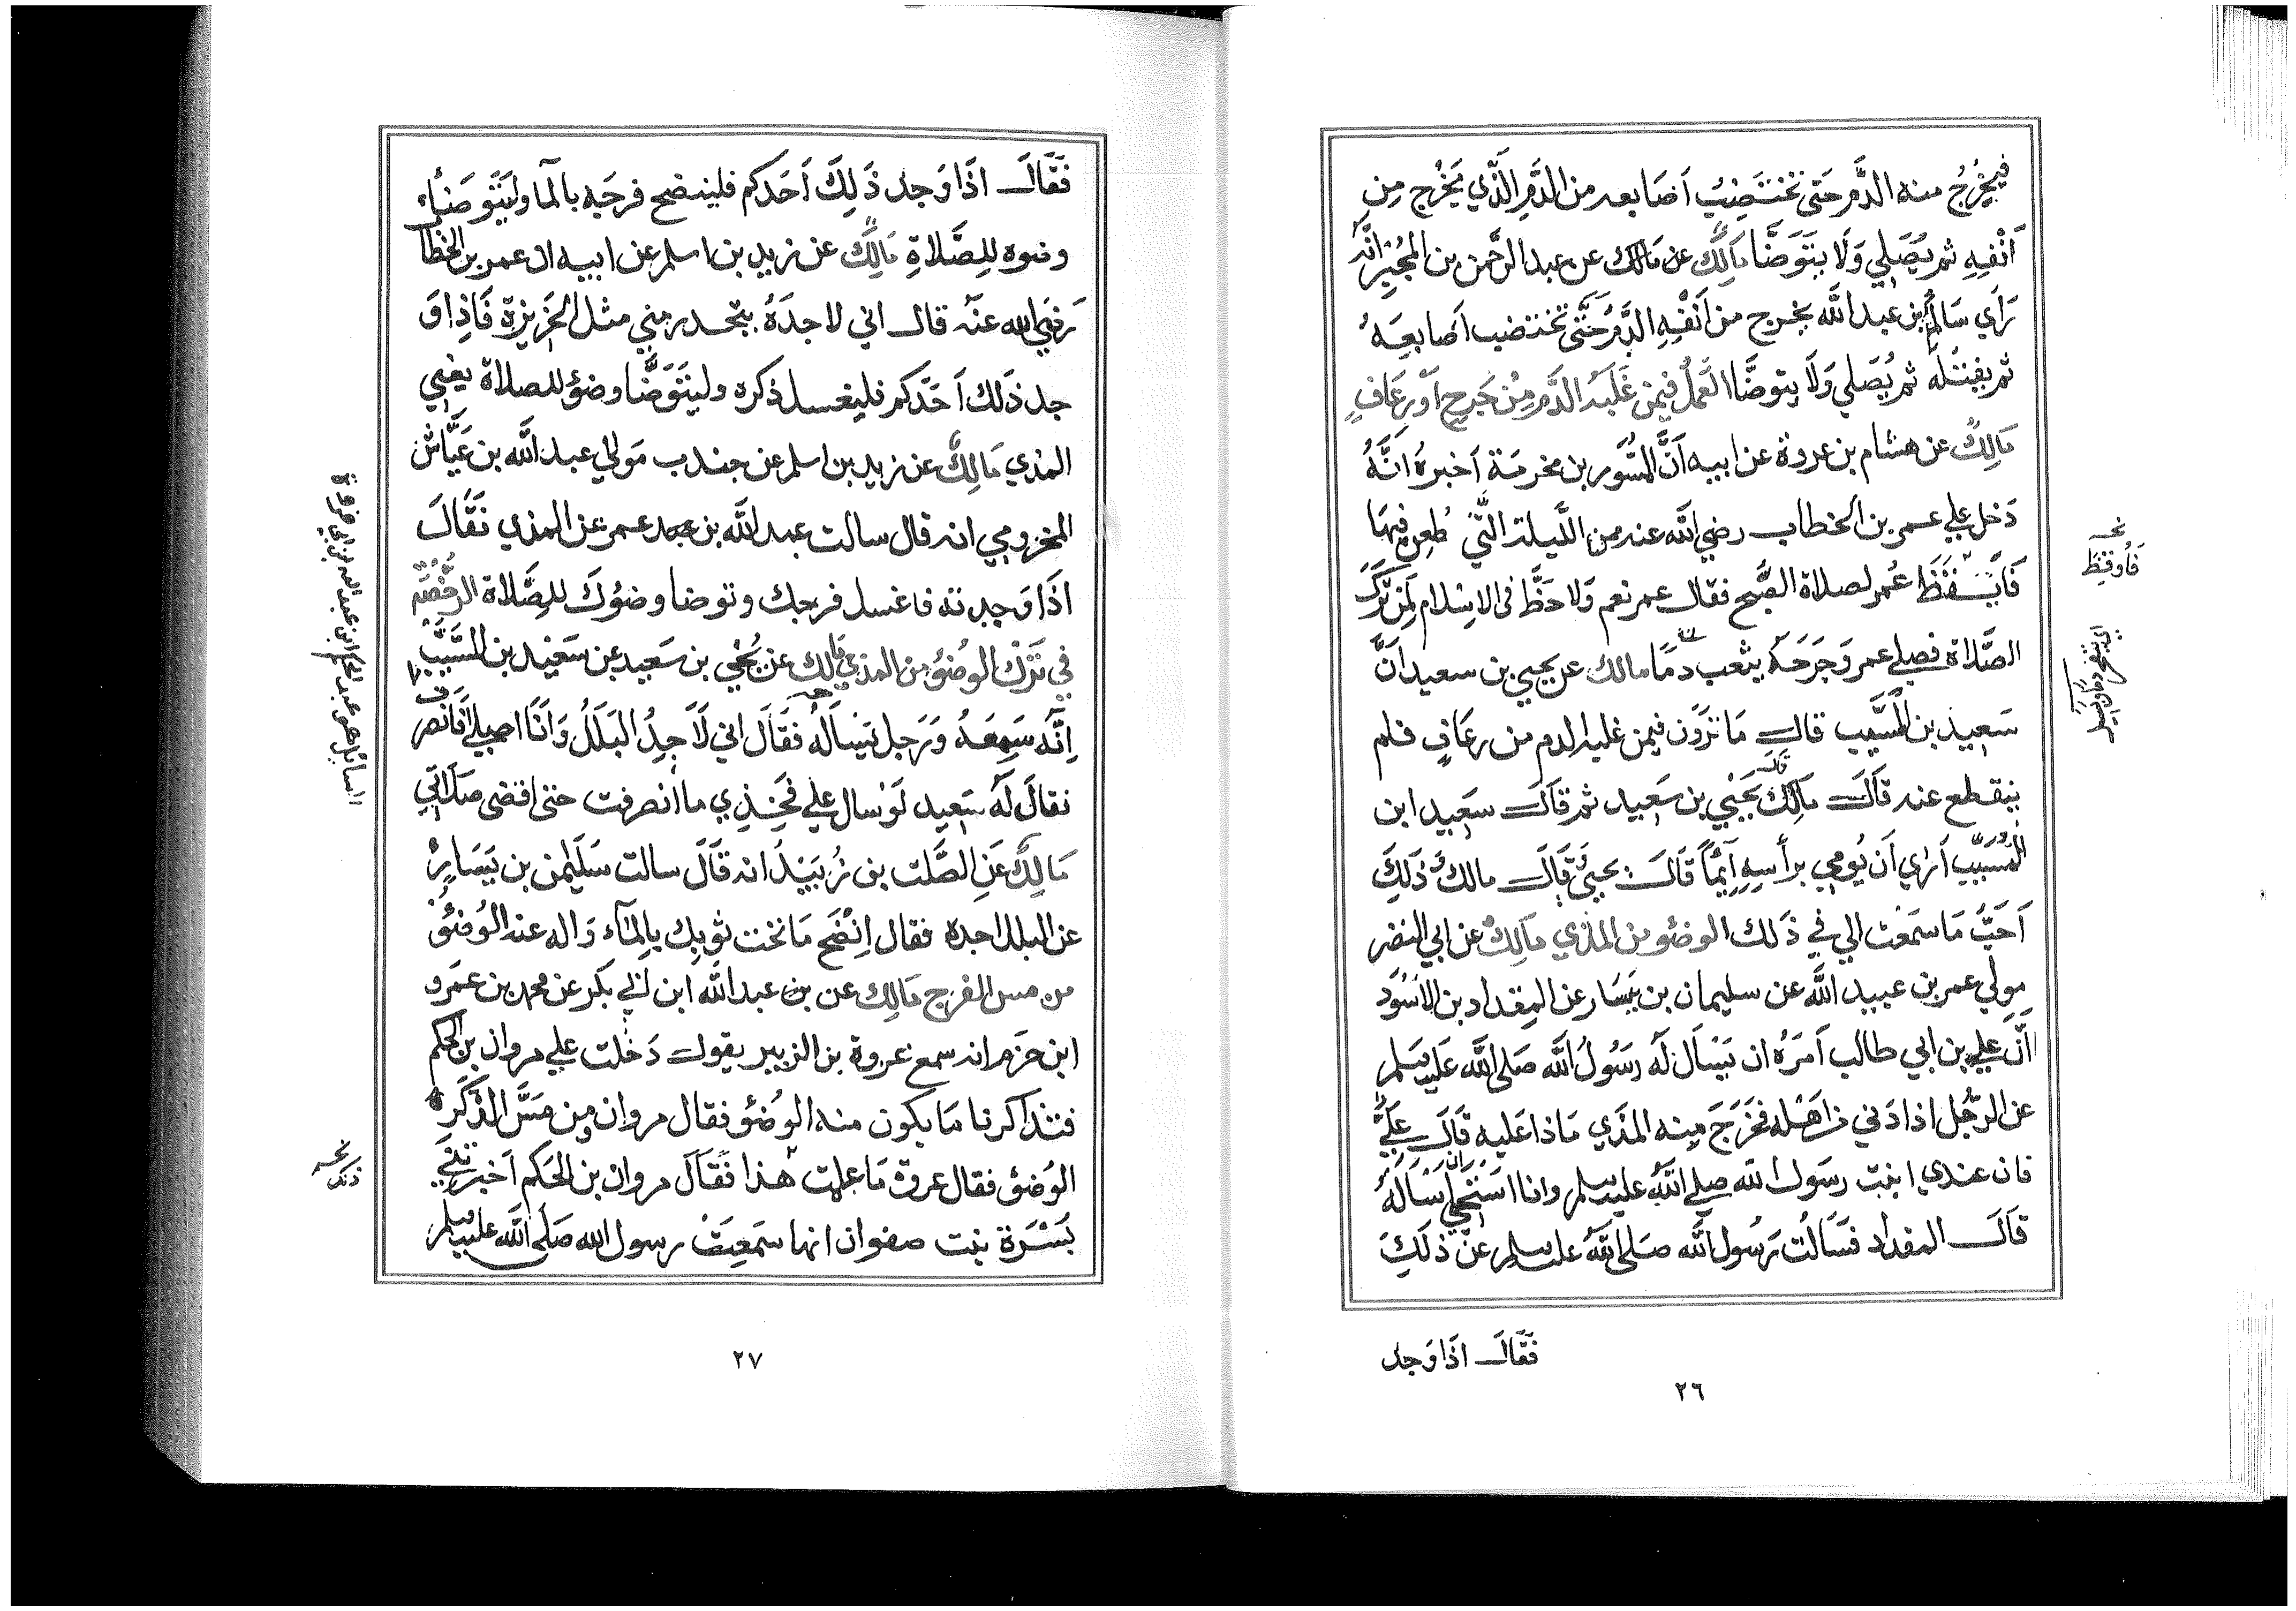 فيخرُجُ منه الدَّم حَتى تختَضِبُ اَصَابعه من الدَّمِ الَّذي يَخْرج مِن
اَنْفِهِ ثم يُصَلي وَلَا يتَوَضَّا مَالِكٌ عن مَالك عن عبد الرَّحمن بن المُجَبِّر انَّه
رَاَي سَالِمُ بن عبد الله يخرج من اَنْفِهِ الدَّمُ حَتَّى تختضب اَصَابِعَهُ
ثم يفتلَه ثم يُصَلي وَلَا يتوضَّا العَملُ فيمن غَلَبَه الدَّم مِن جَرحٍ اَو رعَافٍ
مَالِكٌ عن هشام بن عروة عن ابيه اَنَّ المسَّور بن مخرمَة اَخبرهُ انَّهُ
دَخل علي عمر بن الخطاب رضي الله عنه من اللَّيلة التَّي طُعِن فِيهَا
فَايَقَظَ عُمر لصلاة الصُّبح فقال عمر نعم وَلا حَظَّ فى الاِسْلام لِمَن تَرَكَ
الصَّلاة فصلي عمر وَجَرحَهُ يثعب دمًا مالك عن يحيي بن سعيد اَنَّ
سَعيد بن المُسَّيب قال مَا تَرَون فيمن غلبه الدم من رعَافٍ فلم
ينقطع عنه قاَلَ مَالِكٌ قال يَحْيي بن سَعيد ثم قاَلَ سعَيد ابن
المُسَيَّب اَرَاي اَن يُومي برأسِهِ اِيمًا قَالَ يحيَى قَالَ مالك وَذَلِكَ
اَحَبُّ مَا سَمعْت الي في ذَلك الوضئو من المذي مَالِكٌ عن ابي النضر
مولي عمر بن عبيد الله عن سليمان بن يَسَار عن المِقداد بن الاَسْوَد
اَنّ علي بن ابي طالب اَمَرَهُ ان يَسْاَل لَه رسَوُلُ اللَّه صَلى الله عَليه وسَلم
عن الرَّجُل اذا دَني من اَهْله فخَرَجَ مِنه المَذي مَاذا عَليه قَالَ عَليُّ
فان عندي ابنت رسَول الله صلي الله عليه وسلم وانا استحي ان اَسْاَلَهُ
قَالَ المقداد فَسَاَلْت رَسُول اللَّه صَلى الله عليه وسلم عَن ذَلِكَ
نخـ
فَاُوقِظَ
فَقَالَ اذَا وَجد
٢٦
فَقَالَ اذَا وَجد ذَلِكَ اَحَدكم فلينضح فرجَه بالمآ وليَتَوَضَّأ
وضوه للِصَّلاةِ مَالِكٌ عن زيد بن اسلم عن ابيه ان عمر بن الخطا
رَضي الله عَنْه قال اني لاجدَهُ يتحدر مني مثل الخَرِيزة فَاِذا وَ
جد ذَلك اَحَدكم فليغسل ذكره وليَتَوَضَّا وضئو للصلاة يعَني
المذي مَالِكٌ عن زيد بن اسلم عن جندب مَولي عبد الله بن عَيَّاش
المخزومي انه قال سالت عبد الله بن عمر عن المذي فَقَالَ
اذَا وَجدته فاغسل فرجك وتوضا وضوُكَ للصَّلاة الرُّخْصَة
في تَرْك الوُضئو من المذي مَالك عن يُحْيي بن سَعيد عن سَعيْد بن المسَيَّب
اِنَّه سَمِعَهُ وَرَجل يَسْاَلَهُ فقَالَ اني لَاَجِدُ البَلَلُ وَانَا اصَلي اَفَانصرَف
فقالَ لَه سَعيد لَوْسال علي فَخِذِي ما انصرفت حتى اقضى صَلَاتي
مَالِكٌ عَنِ الصَّلت بن زُبَيْد انه قَالَ سالت سَلَيمن بن يَسَارٍ
عن البلل اجده فقال اِنْضَح مَا تحت ثوبِك بِالمآء وَاله عنه الوُضئو
من مس الفرج مَالِك عن بن عبد الله ابن ابي بكر عن محمد بن عمَرو
ابن حَزم انه سمع عروة بن الزبير يقول دَخَلت علي مروان بن الحكم
فتذاكرنا مَا يكون منه الوُضئو فقال مروان ومِن مَسَّ الذَّكَر
الوُضئو فقال عروة مَا علمت هَذا فَقَالَ مروان بن الحَكم اَخبرتَني
بُسْرَة بنت صفوان انها سَمعِت رسول الله صَلَى الله عليه وسلم
نخـ
ذكر
٢٧